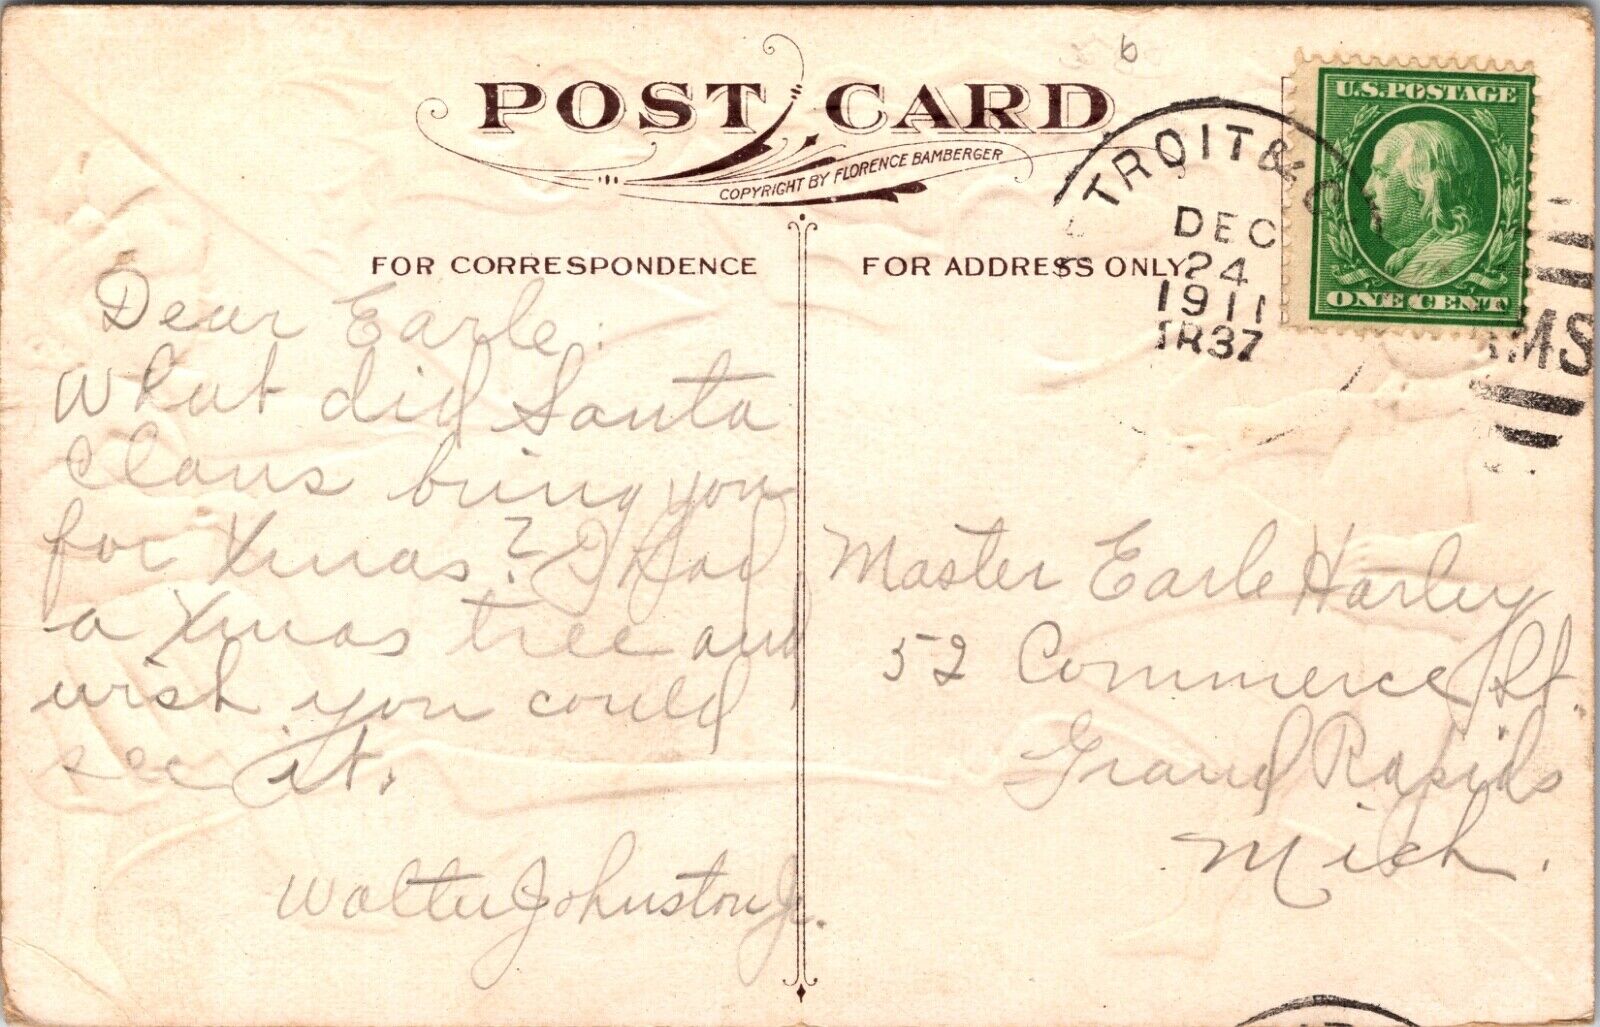 6
POST CARD
COPYRIGHT BY FLORENCE BAMBERGER
TROIT & C
DEC
24
1911
TR37
U.S. POSTAGE
ONE CENT
RMS
FOR CORRESPONDENCE
Dear Earle:
What did Santa
Claus bring you
for Xmas? I had
a Xmas tree and
wish you could
see it.
Walter Johnston Jr.
FOR ADDRESS ONLY
Master Earle Harley
52 Commerce St.
Grand Rapids
Mich.